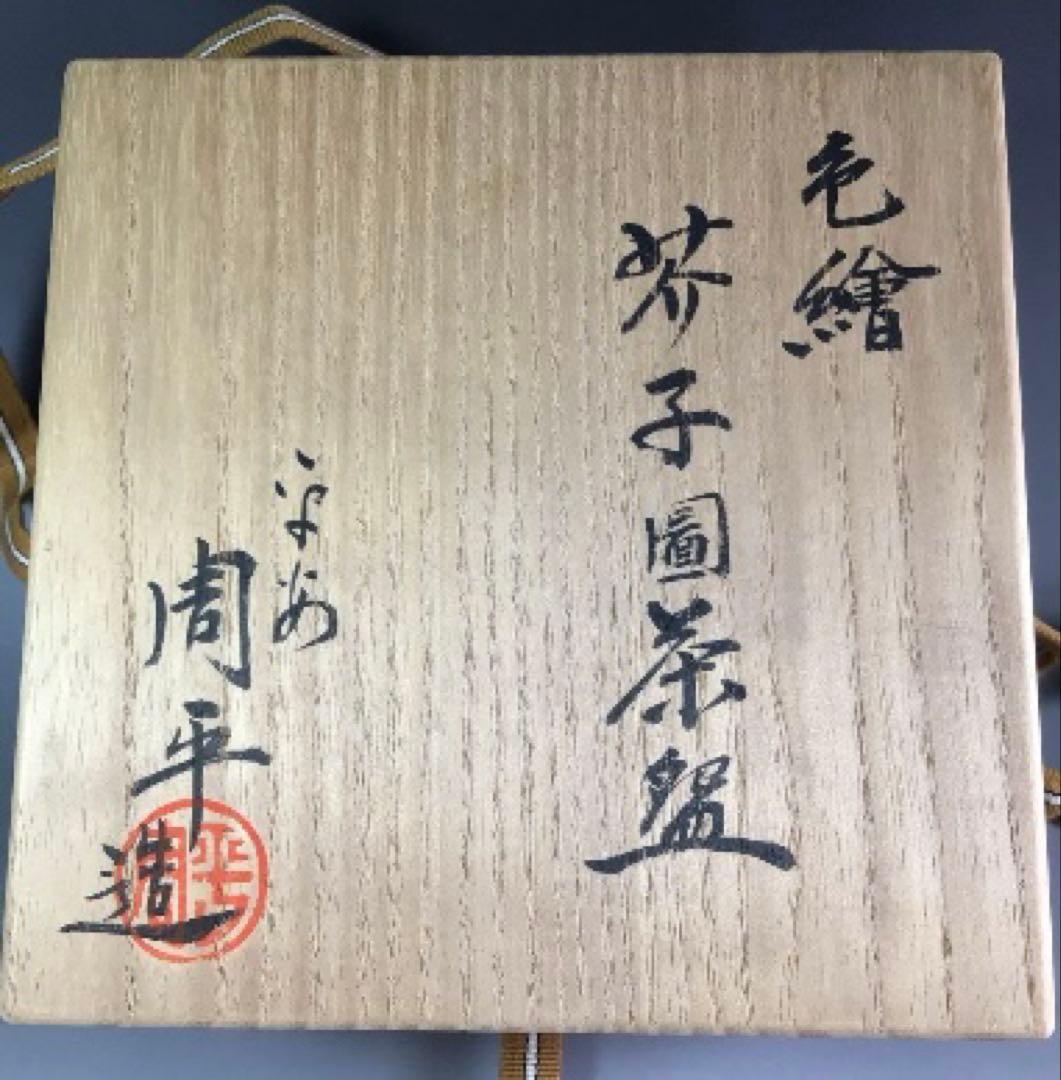 色繪
芥子圖茶盌
平安
周平造